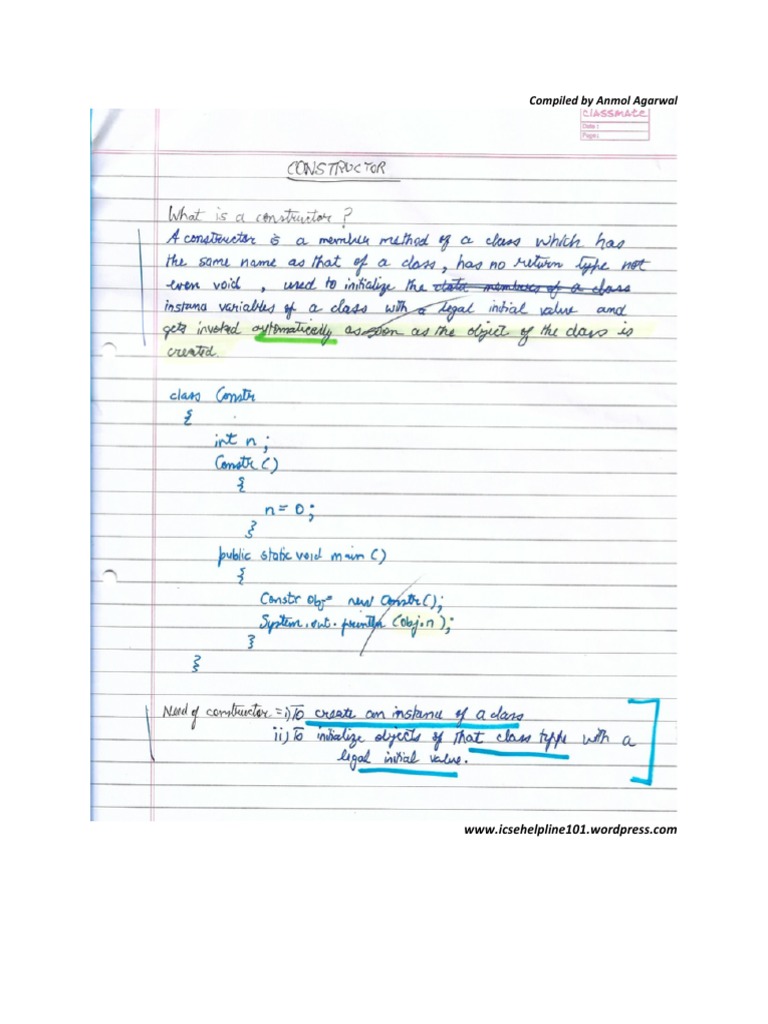 Compiled by Anmol Agarwal
CLASSMATE
Date :
Page:
CONSTRUCTOR
What is a constructor?
A constructor is a member method of a class which has
the same name as that of a class, has no return type not
even void , used to initialize the data members of a class
instance variables of a class with a legal initial value and
gets invoked automatically as soon as the object of the class is
created.
class Constr
{
int n ;
Constr ( )
{
n = 0 ;
}
public static void main ( )
{
Constr obj = new Constr( );
System.out.println (obj.n );
}
}
Need of constructor = i) To create an instance of a class
ii) To initialize objects of that class type with a
legal initial value.
www.icsehelpline101.wordpress.com